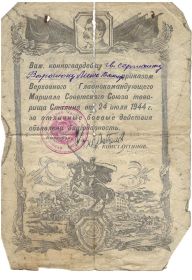 Вам, конногвардейцу гв. сержанту
приказом
Верховного Главнокомандующего
Маршала Советского Союза това-
рища Сталина от 24 июля 1944 г.
за отличные боевые действия
объявлена благодарность.
КОНСТАНТИНОВ.